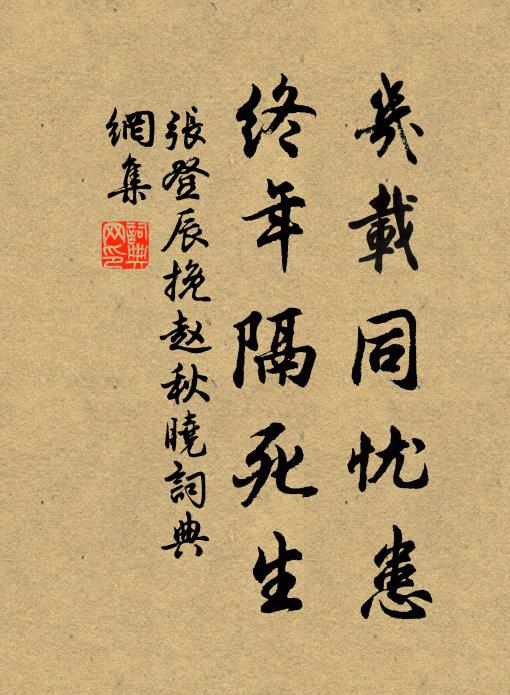 幾載同忧患
终年隔死生
張登辰挽赵秋曉詞典
網集
詞典
网印